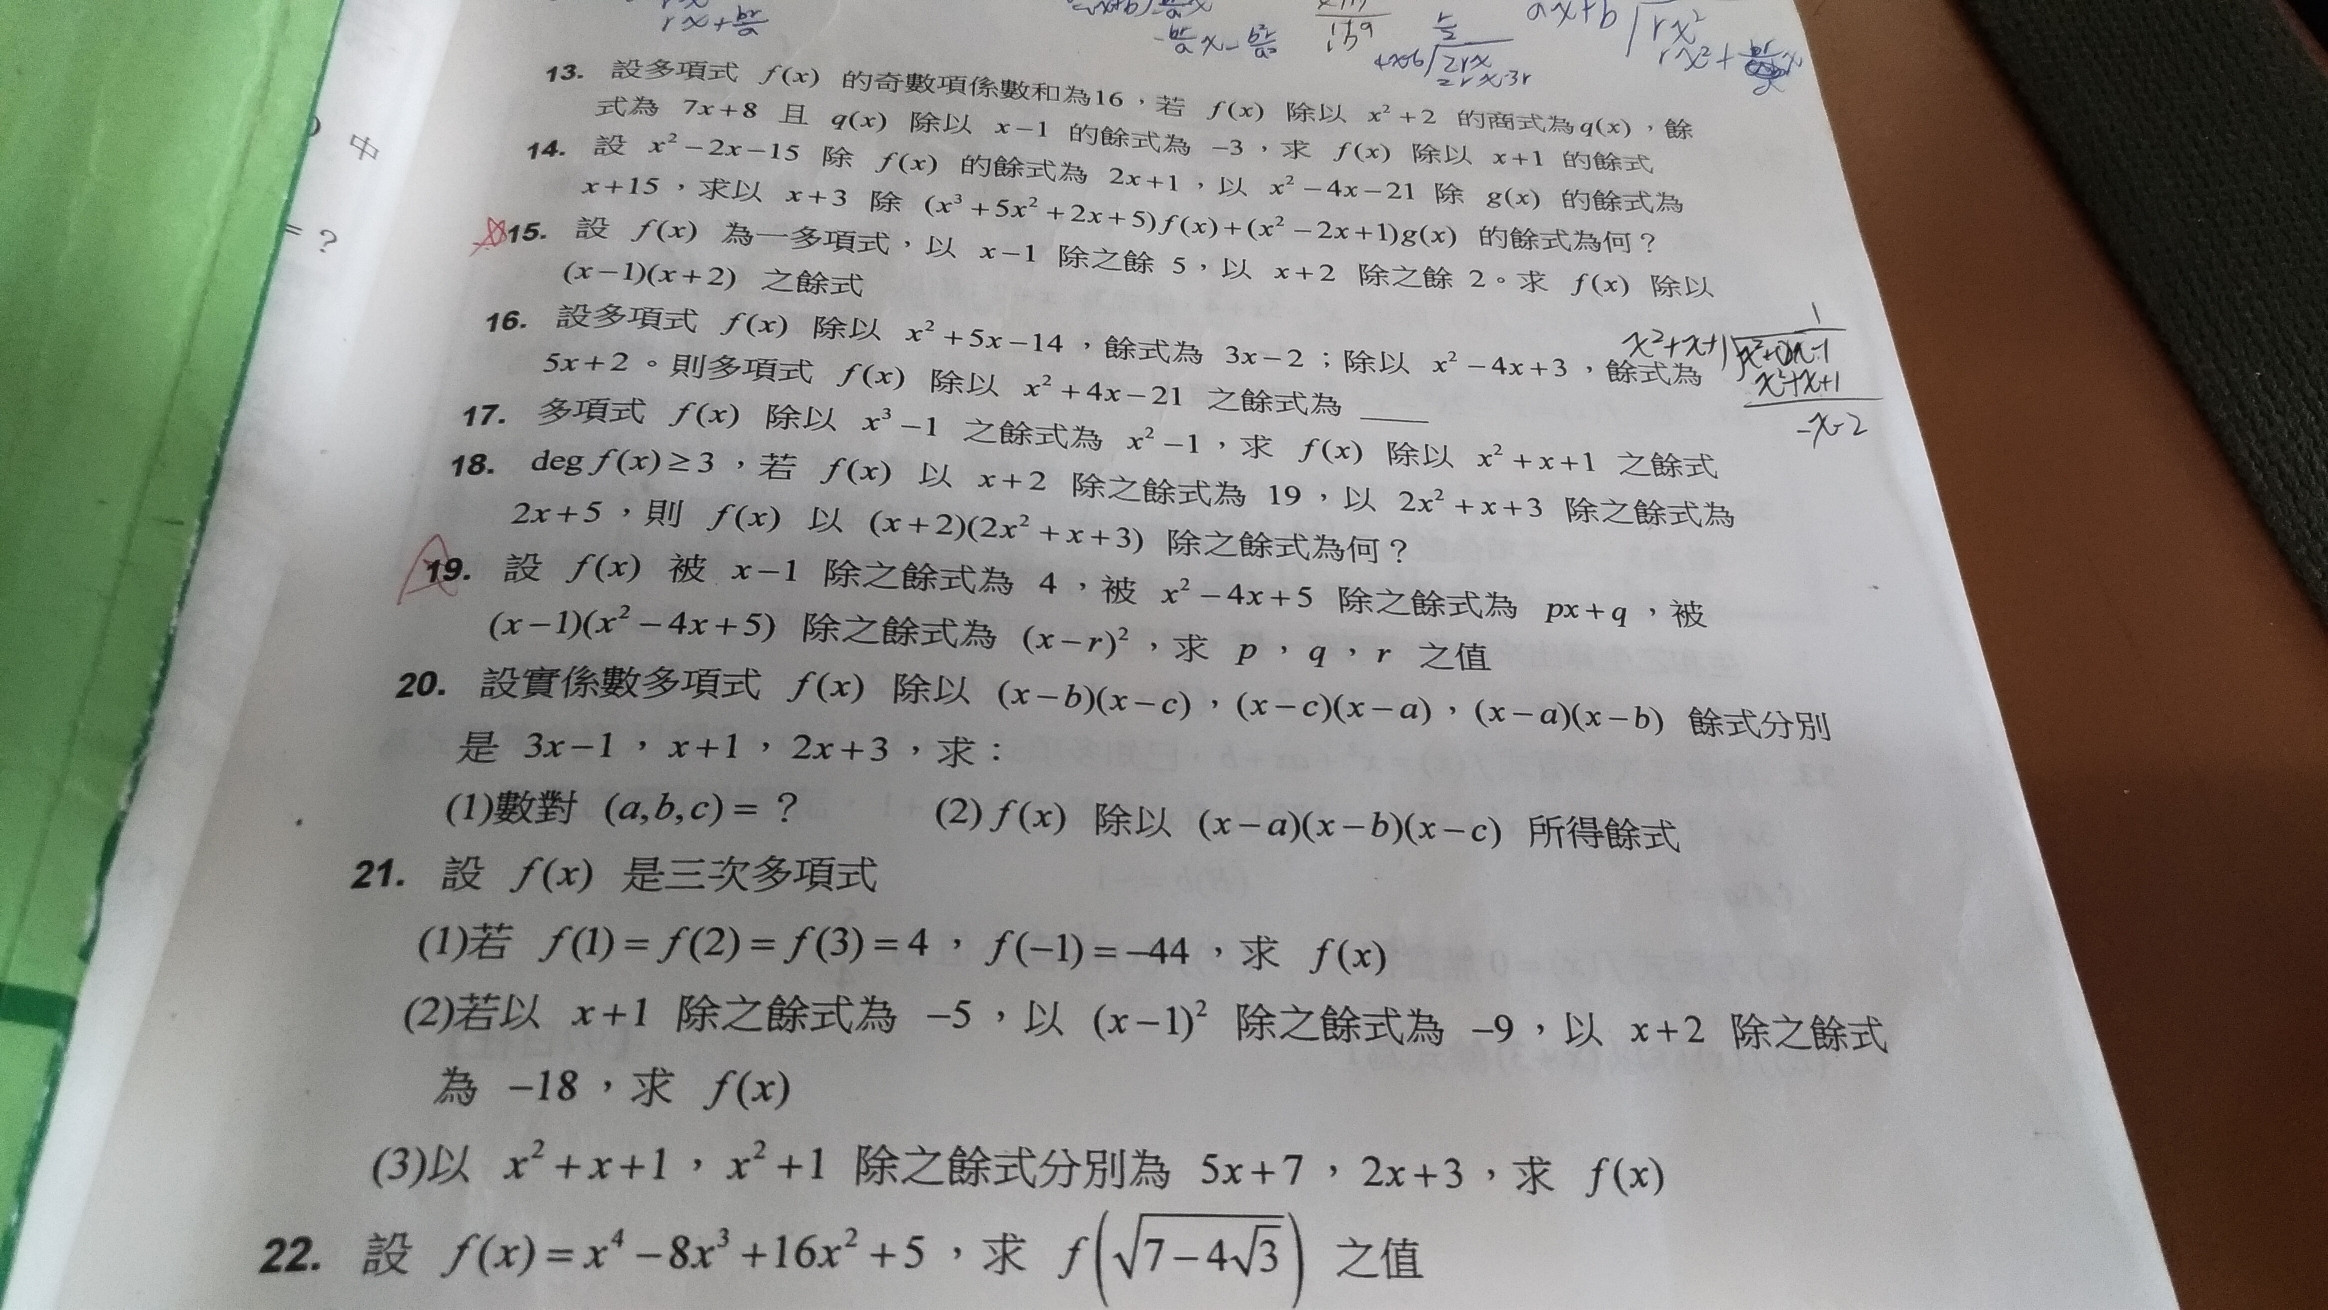 rx+br/a
ax+b
rx²
13. 設多項式 f(x) 的奇數項係數和為16，若 f(x) 除以 x²+2 的商式為q(x)，餘
式為 7x+8 且 q(x) 除以 x-1 的餘式為 -3，求 f(x) 除以 x+1 的餘式
14. 設 x²-2x-15 除 f(x) 的餘式為 2x+1，以 x²-4x-21 除 g(x) 的餘式為
x+15，求以 x+3 除 (x³+5x²+2x+5)f(x)+(x²-2x+1)g(x) 的餘式為何？
15. 設 f(x) 為一多項式，以 x-1 除之餘 5，以 x+2 除之餘 2。求 f(x) 除以
(x-1)(x+2) 之餘式
16. 設多項式 f(x) 除以 x²+5x-14，餘式為 3x-2；除以 x²-4x+3，餘式為
5x+2。則多項式 f(x) 除以 x²+4x-21 之餘式為 ____
17. 多項式 f(x) 除以 x³-1 之餘式為 x²-1，求 f(x) 除以 x²+x+1 之餘式
18. deg f(x)≥3，若 f(x) 以 x+2 除之餘式為 19，以 2x²+x+3 除之餘式為
2x+5，則 f(x) 以 (x+2)(2x²+x+3) 除之餘式為何？
19. 設 f(x) 被 x-1 除之餘式為 4，被 x²-4x+5 除之餘式為 px+q，被
(x-1)(x²-4x+5) 除之餘式為 (x-r)²，求 p，q，r 之值
20. 設實係數多項式 f(x) 除以 (x-b)(x-c)，(x-c)(x-a)，(x-a)(x-b) 餘式分別
是 3x-1，x+1，2x+3，求：
(1)數對 (a,b,c)=？ (2) f(x) 除以 (x-a)(x-b)(x-c) 所得餘式
21. 設 f(x) 是三次多項式
(1)若 f(1)=f(2)=f(3)=4，f(-1)=-44，求 f(x)
(2)若以 x+1 除之餘式為 -5，以 (x-1)² 除之餘式為 -9，以 x+2 除之餘式
為 -18，求 f(x)
(3)以 x²+x+1，x²+1 除之餘式分別為 5x+7，2x+3，求 f(x)
22. 設 f(x)=x⁴-8x³+16x²+5，求 f(√(7-4√3)) 之值
1
x²+x+1
x²+x+1
-x-2
中
=？